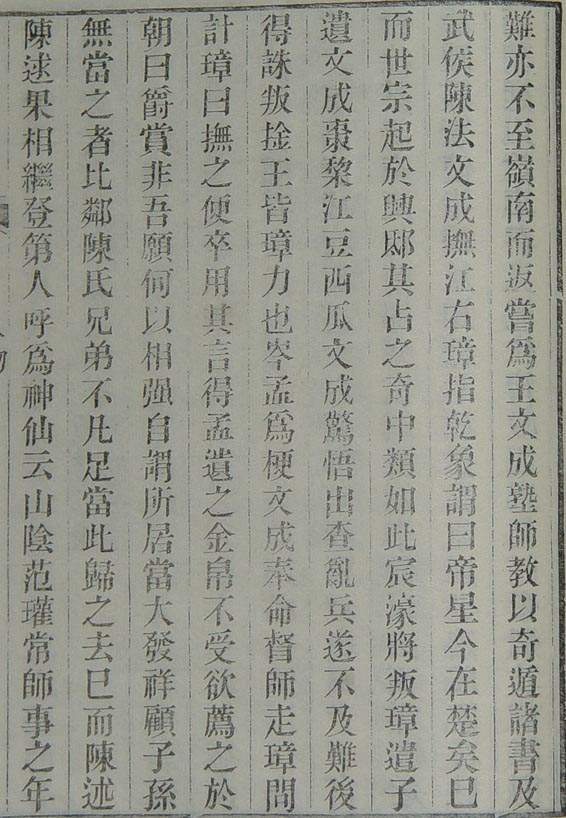 難亦不至嶺南而返嘗爲王文成塾師教以奇遁諸書及
武侯陳法文成撫江右璋指乾象謂曰帝星今在楚矣已
而世宗起於興邸其占之奇中類如此宸濠將叛璋遣子
遺文成棗棃江豆西瓜文成驚悟出查亂兵遂不及難後
得誅叛擒王皆璋力也岑孟爲梗文成奉命督師走璋問
計璋曰撫之便卒用其言得孟遺之金帛不受欲薦之於
朝曰爵賞非吾願何以相强自謂所居當大發祥顧子孫
無當之者比鄰陳氏兄弟不凡足當此歸之去已而陳述
陳逑果相繼登第人呼爲神仙云山陰范瓘常師事之年